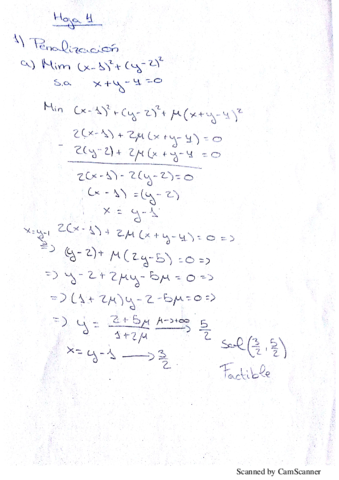 Hoja 4
1) Penalización
a) Min (x-1)²+(y-2)²
s.a x+y-4=0
Min (x-1)²+(y-2)²+μ(x+y-4)²
2(x-1)+2μ(x+y-4)=0
- 2(y-2)+2μ(x+y-4)=0
2(x-1)-2(y-2)=0
(x-1)=(y-2)
x = y-1
x=y-1 2(x-1)+2μ(x+y-4)=0 =>
=> (y-2)+μ(2y-5)=0 =>
=> y-2+2μy-5μ=0 =>
=> (1+2μ)y-2-5μ=0 =>
=> y = (2+5μ)/(1+2μ) μ→+∞ → 5/2
x=y-1 → 3/2
Sol (3/2, 5/2)
Factible
Scanned by CamScanner